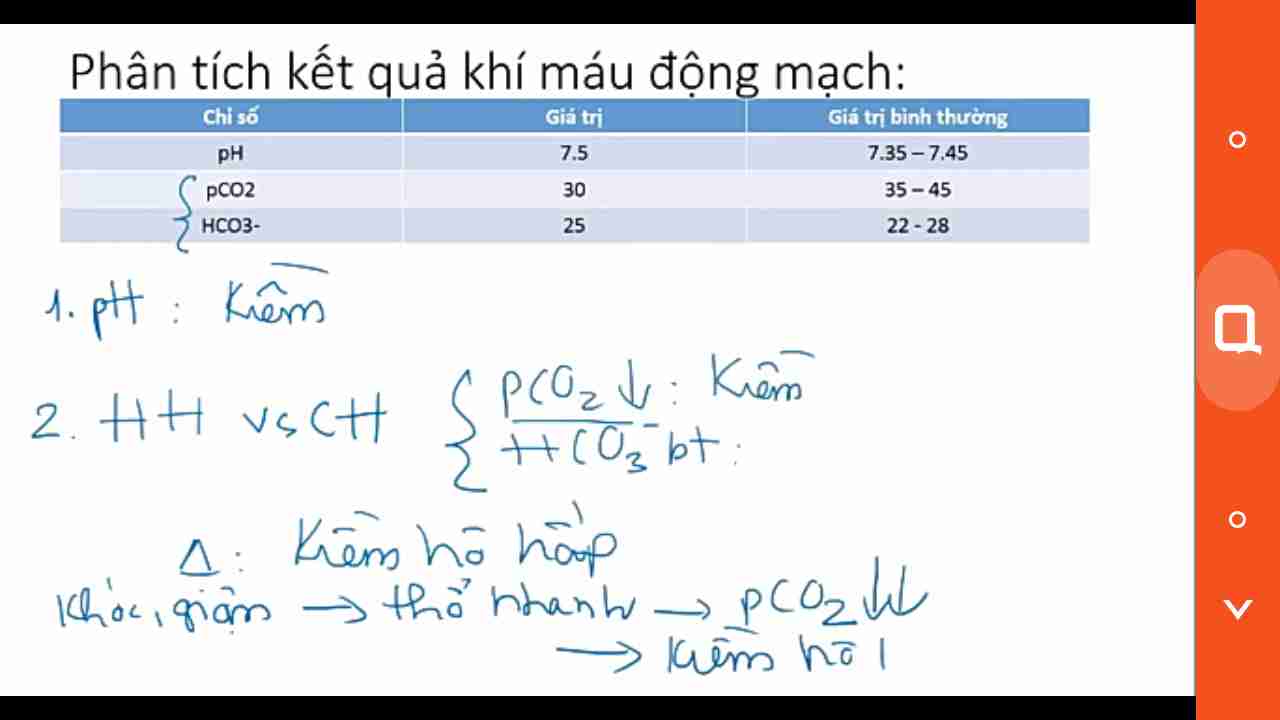 Phân tích kết quả khí máu động mạch:
Chỉ số Giá trị Giá trị bình thường
pH 7.5 7.35 – 7.45
pCO2 30 35 – 45
HCO3- 25 22 - 28
1. pH : Kiềm
2. HH vs CH
pCO2 ↓ : Kiềm
HCO3- bt :
Δ : Kiềm hô hấp
Khóc, giận → thở nhanh → pCO2 ↓↓
→ Kiềm hô